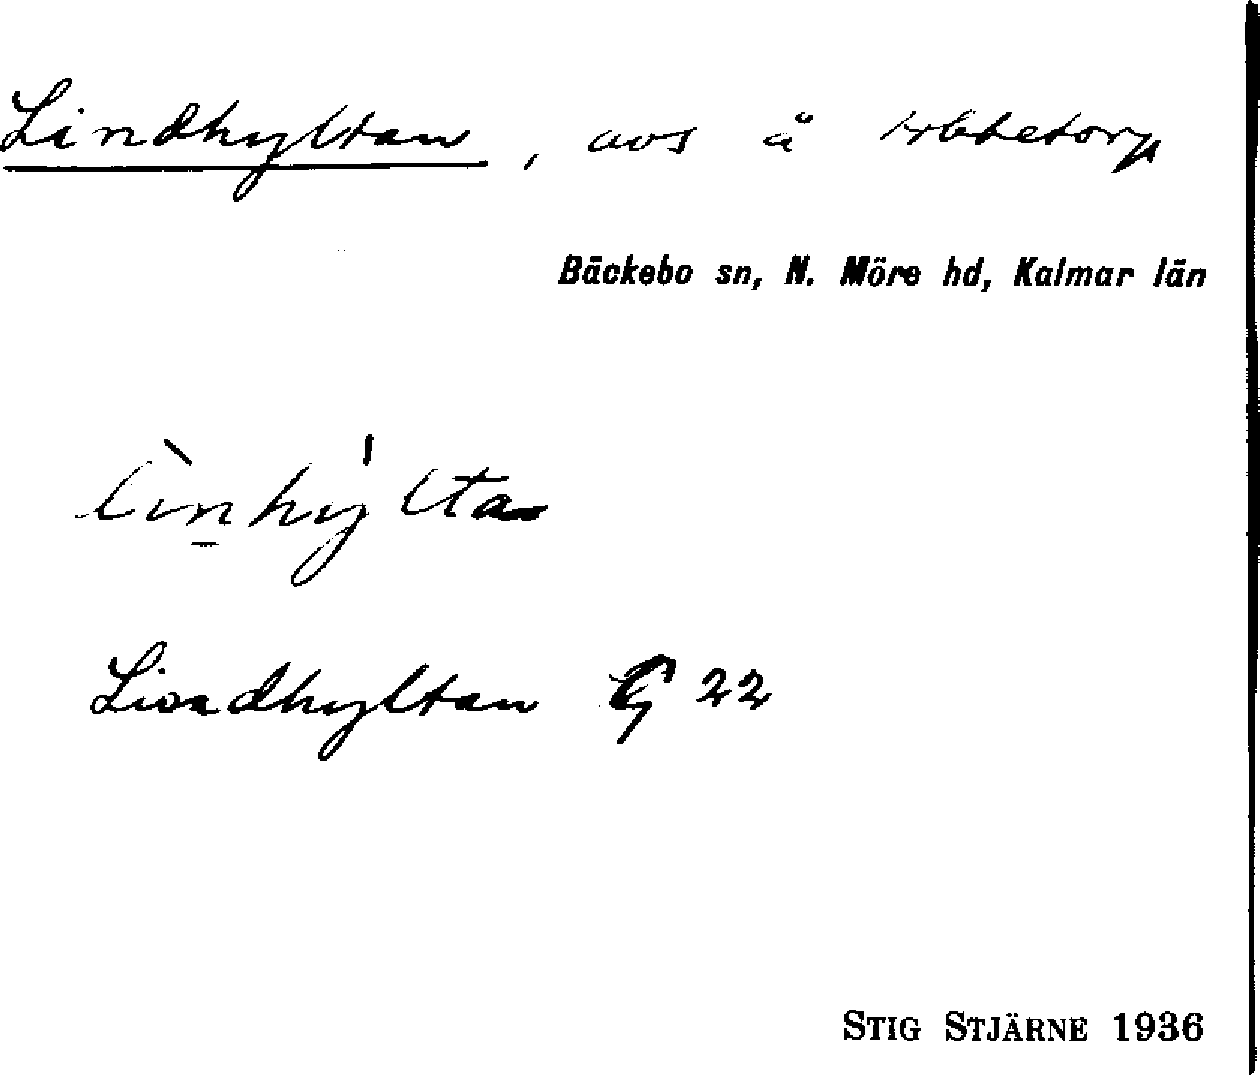 Lindhyltan, avs å Abbetorp
Bäckebo sn, N. Möre hd, Kalmar län
lìnhy̍lta
Lindhyltan G 22
STIG STJÄRNE 1936